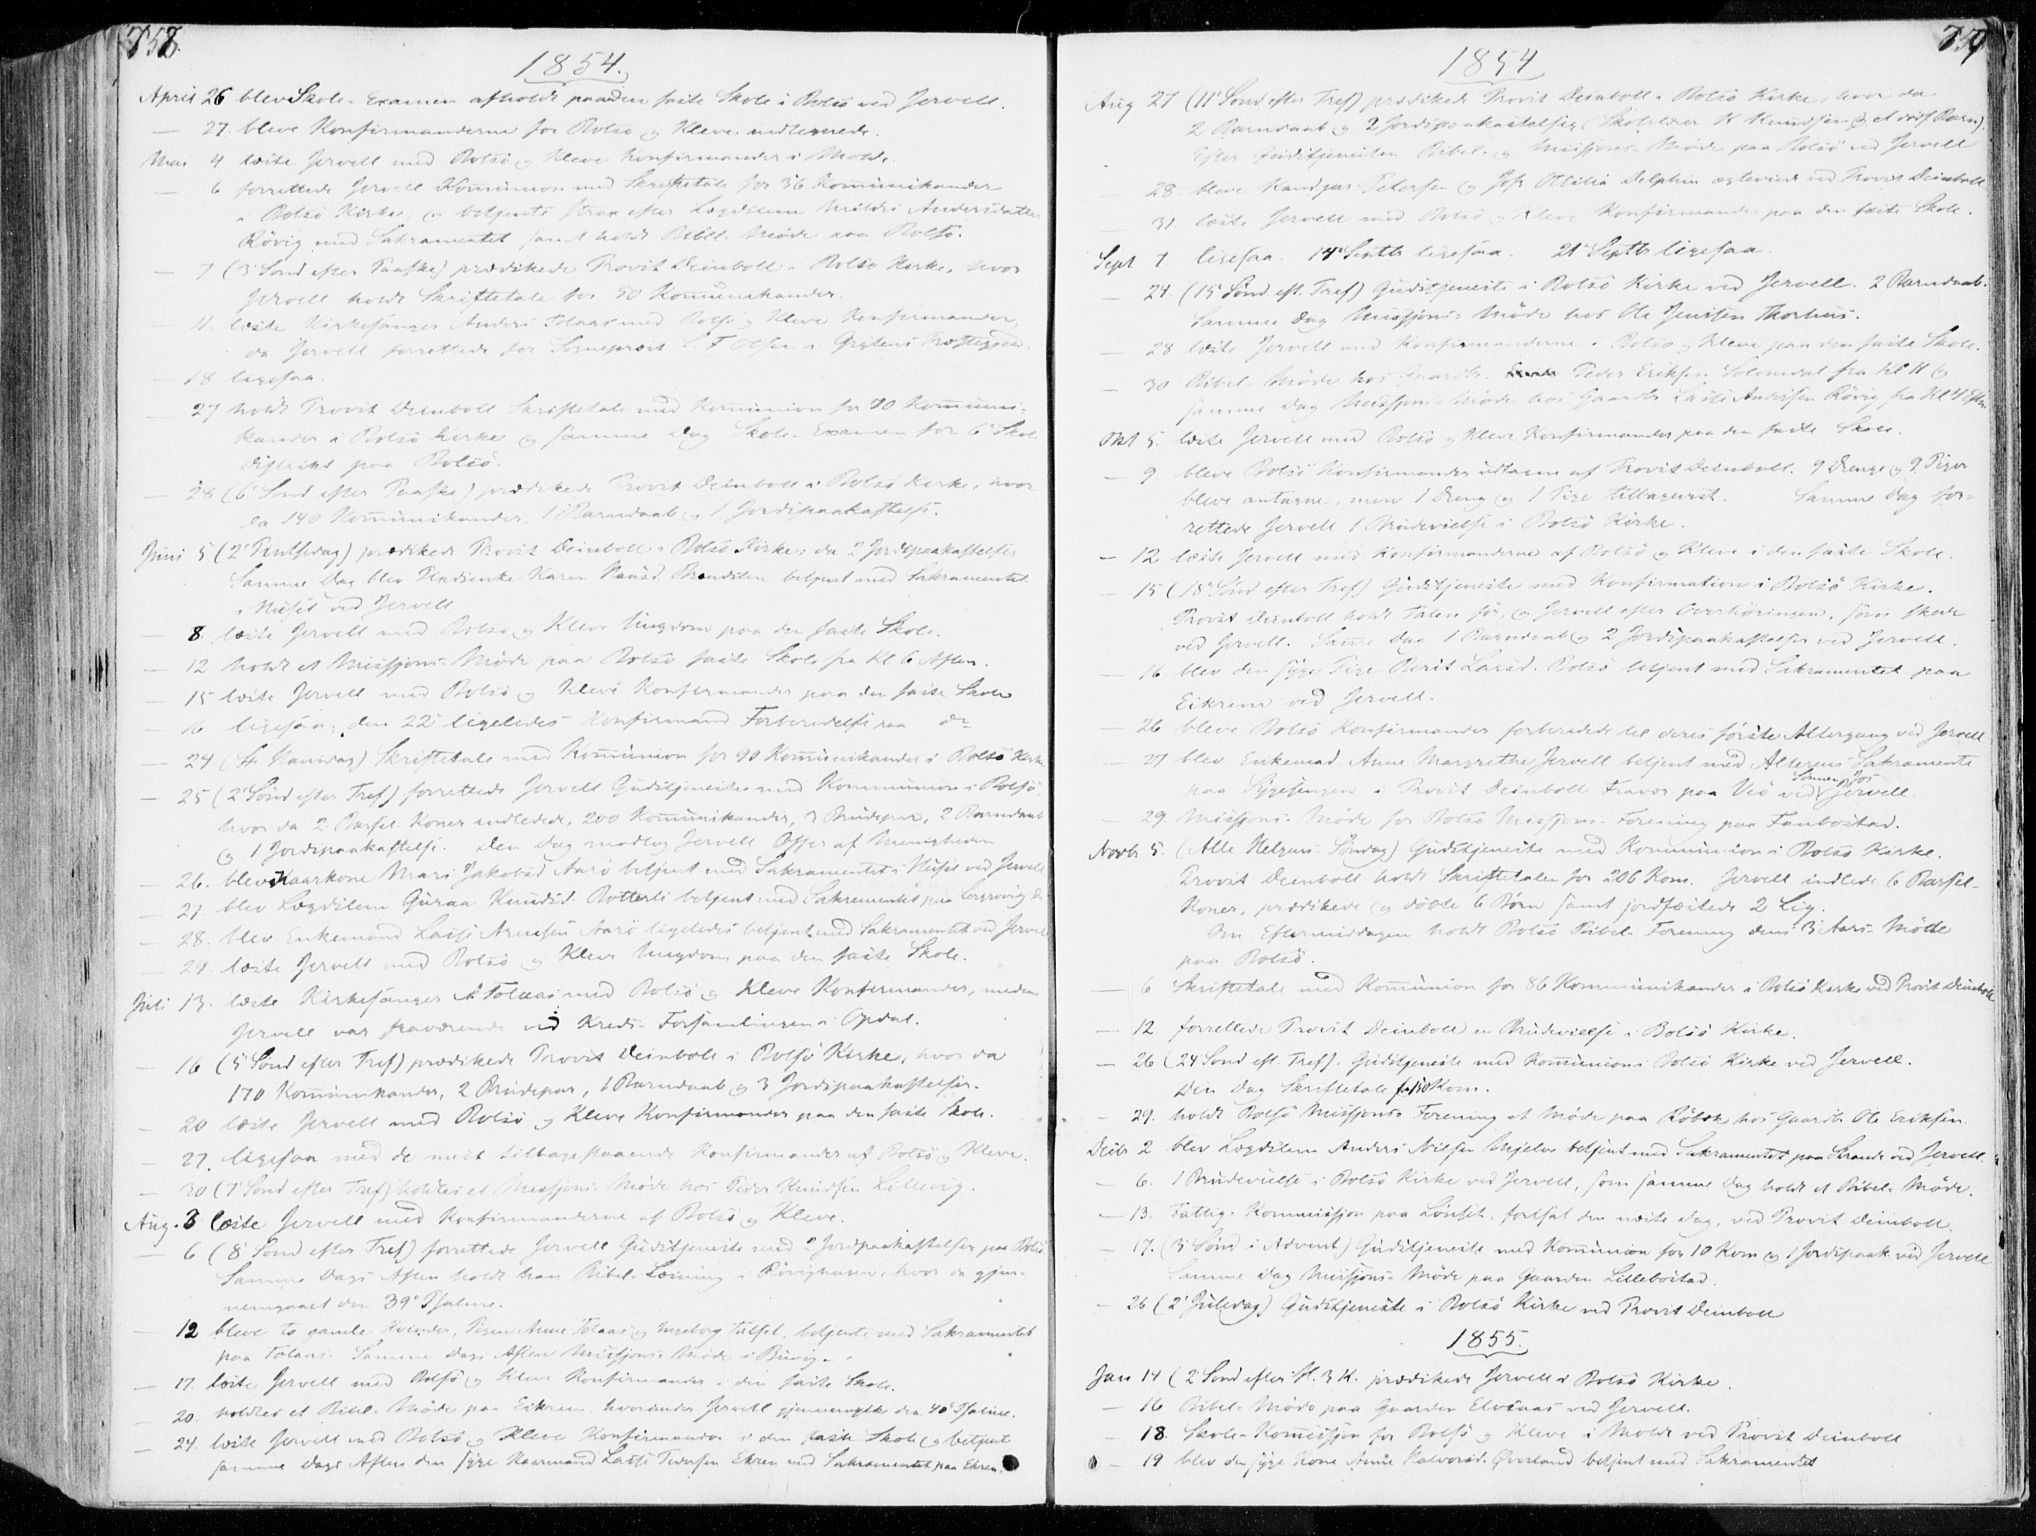 758.
1854.
April 26 blev Skole-Examen afholdt paa den faste Skole i Bolsö ved Jervell.
— 27. bleve Konfirmanderne for Bolsö og Kleve indtegnede.
Mai 4 læste Jervell med Bolsö og Kleve Konfirmander i Molde.
— 6 forrettede Jervell Kommunion med Skriftetale for 36 Kommunikander
i Bolsö Kirke, og betjente strax efter Lægdslem Mildri Andersdatter
Rövig med Sakramentet samt holdt Bibel-Möde paa Bolsö.
— 7 (3' Sönd efter Paaske) prædikede Provst Deinboll i Bolsö Kirke, hvor
Jervell holdt Skriftetale for 50 Kommunikander.
— 11. læste Kirkesanger Anders Tolaas med Bolsö og Kleve Konfirmander,
da Jervell forrettede for Sogneprest i Grytens Præstegjeld.
— 18 ligesaa.
27 holdt Provst Deinboll Skriftetale med Kommunion for 70 Kommuni-
kander i Bolsö Kirke og samme Dag Skole-Examen for 6' Skole
Distrikt paa Bolsö.
— 28 (6' Sönd efter Paaske) prædikede Provst Deinboll i Bolsö Kirke, hvor
da 140 Kommunikander, 1 Barndaab og 1 Jordspaakastelse.
Juni 5 (2' Pintsedag) prædikede Provst Deinboll i Bolsö Kirke; da 2 Jordspaakastelser
Samme Dag blev Karen betjent med Sakramentet
i Huset ved Jervell
— 8. læste Jervell med Bolsö og Kleve Ungdom paa den faste Skole.
— 12 holdt et Missjons-Möde paa Bolsö faste Skole fra Kl 6 Aften.
— 15 læste Jervell med Bolsö og Kleve Konfirmander paa den faste Skole
— 16 ligesaa; den 22' ligeledes Konfirmand Forberedelse paa do
— 24 (St. Hansdag) Skriftetale med Kommunion for 90 Kommunikander i Bolsö Kirke
— 25 (2' Sönd efter Tref) forrettede Jervell Gudstjeneste med Kommunion i Bolsö,
hvor da 2 Barsel-Koner indledede, 200 Kommunikander, 2 Brudepar, 2 Barndaab
og 1 Jordspaakastelse. Den Dag modtog Jervell Offer af Menigheden
— 26. blev Kaarkone Mari Jakobsd Aarö betjent med Sakramentet i Huset ved Jervell
— 27. blev Lægdslem Guraa Knudsd. betjent med Sakramentet paa
— 28. blev Enkemand Lasse Arnesen Aarö ligeledes betjent med Sakramentet ved Jervell
— 29. læste Jervell med Bolsö og Kleve Ungdom paa den faste Skole.
Juli 13. læste Kirkesanger A Tolaas med Bolsö og Kleve Konfirmander, medens
Jervell var fraværende ved Kreds-Forsamlingen i Opdal.
— 16 (5' Sönd efter Tref) prædikede Provst Deinboll i Bolsö Kirke, hvor da
170 Kommunikander, 2 Brudepar, 1 Barndaab og 3 Jordspaakastelser.
— 20 læste Jervell med Bolsö og Kleve Konfirmander paa den faste Skole.
— 27. ligesaa med de mest tilbagestaaende Konfirmander af Bolsö og Kleve.
— 30 (7' Sönd efter Tref) holdtes et Missjons-Möde hos Peder Knudsen Lillevig.
Aug. 3 læste Jervell med Konfirmanderne af Bolsö og Kleve.
— 6 (8' Sönd efter Tref) forrettede Jervell Gudstjeneste med 2 Jordpaakastelser paa Bolsö
Samme Dags Aften holdt han Bibel-Læsning i Rövighusen, hvor da gjen-
nemgaaet den 39' Psalme.
— 12 bleve to gamle Kvinder, Pigen Anne Tolaas og Ingeborg, betjente med Sakramentet
paa Tolaas. Samme Dags Aften Missjons-Möde i
— 17. læste Jervell med Bolsö og Kleve Konfirmander i den faste Skole.
— 20. holdtes et Bibel-Möde paa Eikrem, hvorunder Jervell gjennemgik den 40' Psalme.
— 24. læste Jervell med Bolsö og Kleve Konfirmander i den faste Skole og betjente
samme Dags Aften den syge Kaarmand Lasse Ekren med Sakramentet paa Ekren.
759
1854
Aug 27 (11' Sönd efter Tref) prædikede Provst Deinboll i Bolsö Kirke, hvor da
2 Barndaab og 2 Jordspaakastelser (Skolelærer K Knudsen og et Barn).
Efter Gudstjenesten Bibel- og Missjons-Möde paa Bolsö ved Jervell
— 28. bleve Petersen og Delphin ægteviede ved Provst Deinboll
— 31 læste Jervell med Bolsö og Kleve Konfirmander paa den faste Skole.
Sept 7 ligesaa. 14' Septbr ligesaa. 21' Septbr ligesaa.
— 24. (15' Sönd eft. Tref) Gudstjeneste i Bolsö Kirke ved Jervell. 2 Barndaab.
Samme Dag Missjons-Möde hos Ole Jensen Thorhus.
— 28 læste Jervell med Konfirmanderne i Bolsö og Kleve paa den faste Skole.
— 30 Bibel-Möde hos Gaardb. Peder Eriksen Solemdal fra Kl 11 og
samme Dag Missjons-Möde hos Gaardb. Lasse Andersen Rövig fra Kl 4 Efterm
Okt 5. læste Jervell med Bolsö og Kleve Konfirmander paa den faste Skole.
— 9 bleve Bolsö Konfirmander udtagne af Provst Deinboll. 9 Drenge og 9 Piger
bleve antagne, men 1 Dreng og 1 Pige tilbagevist. Samme Dag for-
rettede Jervell 1 Brudevielse i Bolsö Kirke.
— 12 læste Jervell med Konfirmanderne af Bolsö og Kleve i den faste Skole.
— 15 (18' Sönd efter Tref) Gudstjeneste med Konfirmation i Bolsö Kirke.
Provst Deinboll holdt Talen för, og Jervell efter Overhöringen, som skede
ved Jervell. Samme Dag 1 Barndaab og 2 Jordspaakastelser ved Jervell.
— 16. blev den syge Pige Berit Larsd. Bolsö betjent med Sakramentet paa
Eikrem ved Jervell.
— 26 bleve Bolsö Konfirmander forberedede til deres förste Altergang ved Jervell
— 27 blev Enkemad. Anne Margrethe Jervell betjent med Alterens Sakramente
paa Sygesengen i Provst Deinboll Fravær paa Veö ved Sönnen Jervell.
— 29. Missjons-Möde for Bolsö Missjons-Forening paa Fanbostad.
Novbr 5. (Alle Helgens Söndag) Gudstjeneste med Kommunion i Bolsö Kirke.
Provst Deinboll holdt Skriftetalen for 206 Kom. Jervell indlede 6 Barsel-
Koner, prædikede og döbte 6 Börn samt jordfæstede 2 Lig.
Om Eftermiddagen holdt Bolsö Bibel-Forening dens 3' Aars-Möde
paa Bolsö.
— 6 Skriftetale med Kommunion for 86 Kommunikander i Bolsö Kirke ved Provst Deinboll
— 12. forrettede Provst Deinboll en Brudevielse i Bolsö Kirke.
— 26 (24 Sönd eft. Tref). Gudstjeneste med Kommunion i Bolsö Kirke ved Jervell.
Den Dag Skriftetale for 50 Kom.
— 29. holdt Bolsö Missjons-Forening et Möde paa Röbæk hos Gaardb. Ole Eriksen.
Decbr 2 blev Lægdslem Anders Nielsen Mjelve betjent med Sakramentet paa Strande ved Jervell.
— 6. 1 Brudevielse i Bolsö Kirke ved Jervell, som samme Dag holdt et Bibel-Möde.
— 13. Fattig-Kommissjon paa Lönset, fortsat den næste Dag, ved Provst Deinboll.
— 17. (3' Sönd i Advent) Gudstjeneste med Kommunion for 10 Kom og 1 Jordspaak ved Jervell
Samme Dag Missjons-Möde paa Gaarden Lillebostad.
— 26 (2' Juledag) Gudstjeneste i Bolsö Kirke ved Provst Deinboll
1855.
Jan 14 (2' Sönd efter H. 3 K. prædikede Jervell i Bolsö Kirke.
— 16 Bibel-Möde paa Gaarden Elvsaas ved Jervell.
— 18. Skole-Kommissjon for Bolsö og Kleve i Molde ved Provst Deinboll
— 19 blev den syge Kone Anne Halvorsd. Överland betjent med Sakramentet